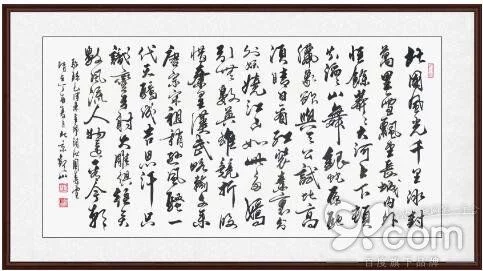 北國風光千里冰封
萬里雪飄望長城内外
惟餘莽莽大河上下頓
失滔滔山舞銀蛇原馳
蠟象欲與天公試比高
須晴日看紅裝素裹分
外妖嬈江山如此多嬌
引無數英雄競折腰
惜秦皇漢武略輸文采
唐宗宋祖稍遜風騷一
代天驕成吉思汗只
識彎弓射大雕俱往矣
數風流人物還看今朝
毛澤東主席詞沁園春雪
丁酉
北京
.com
百度旗下品牌